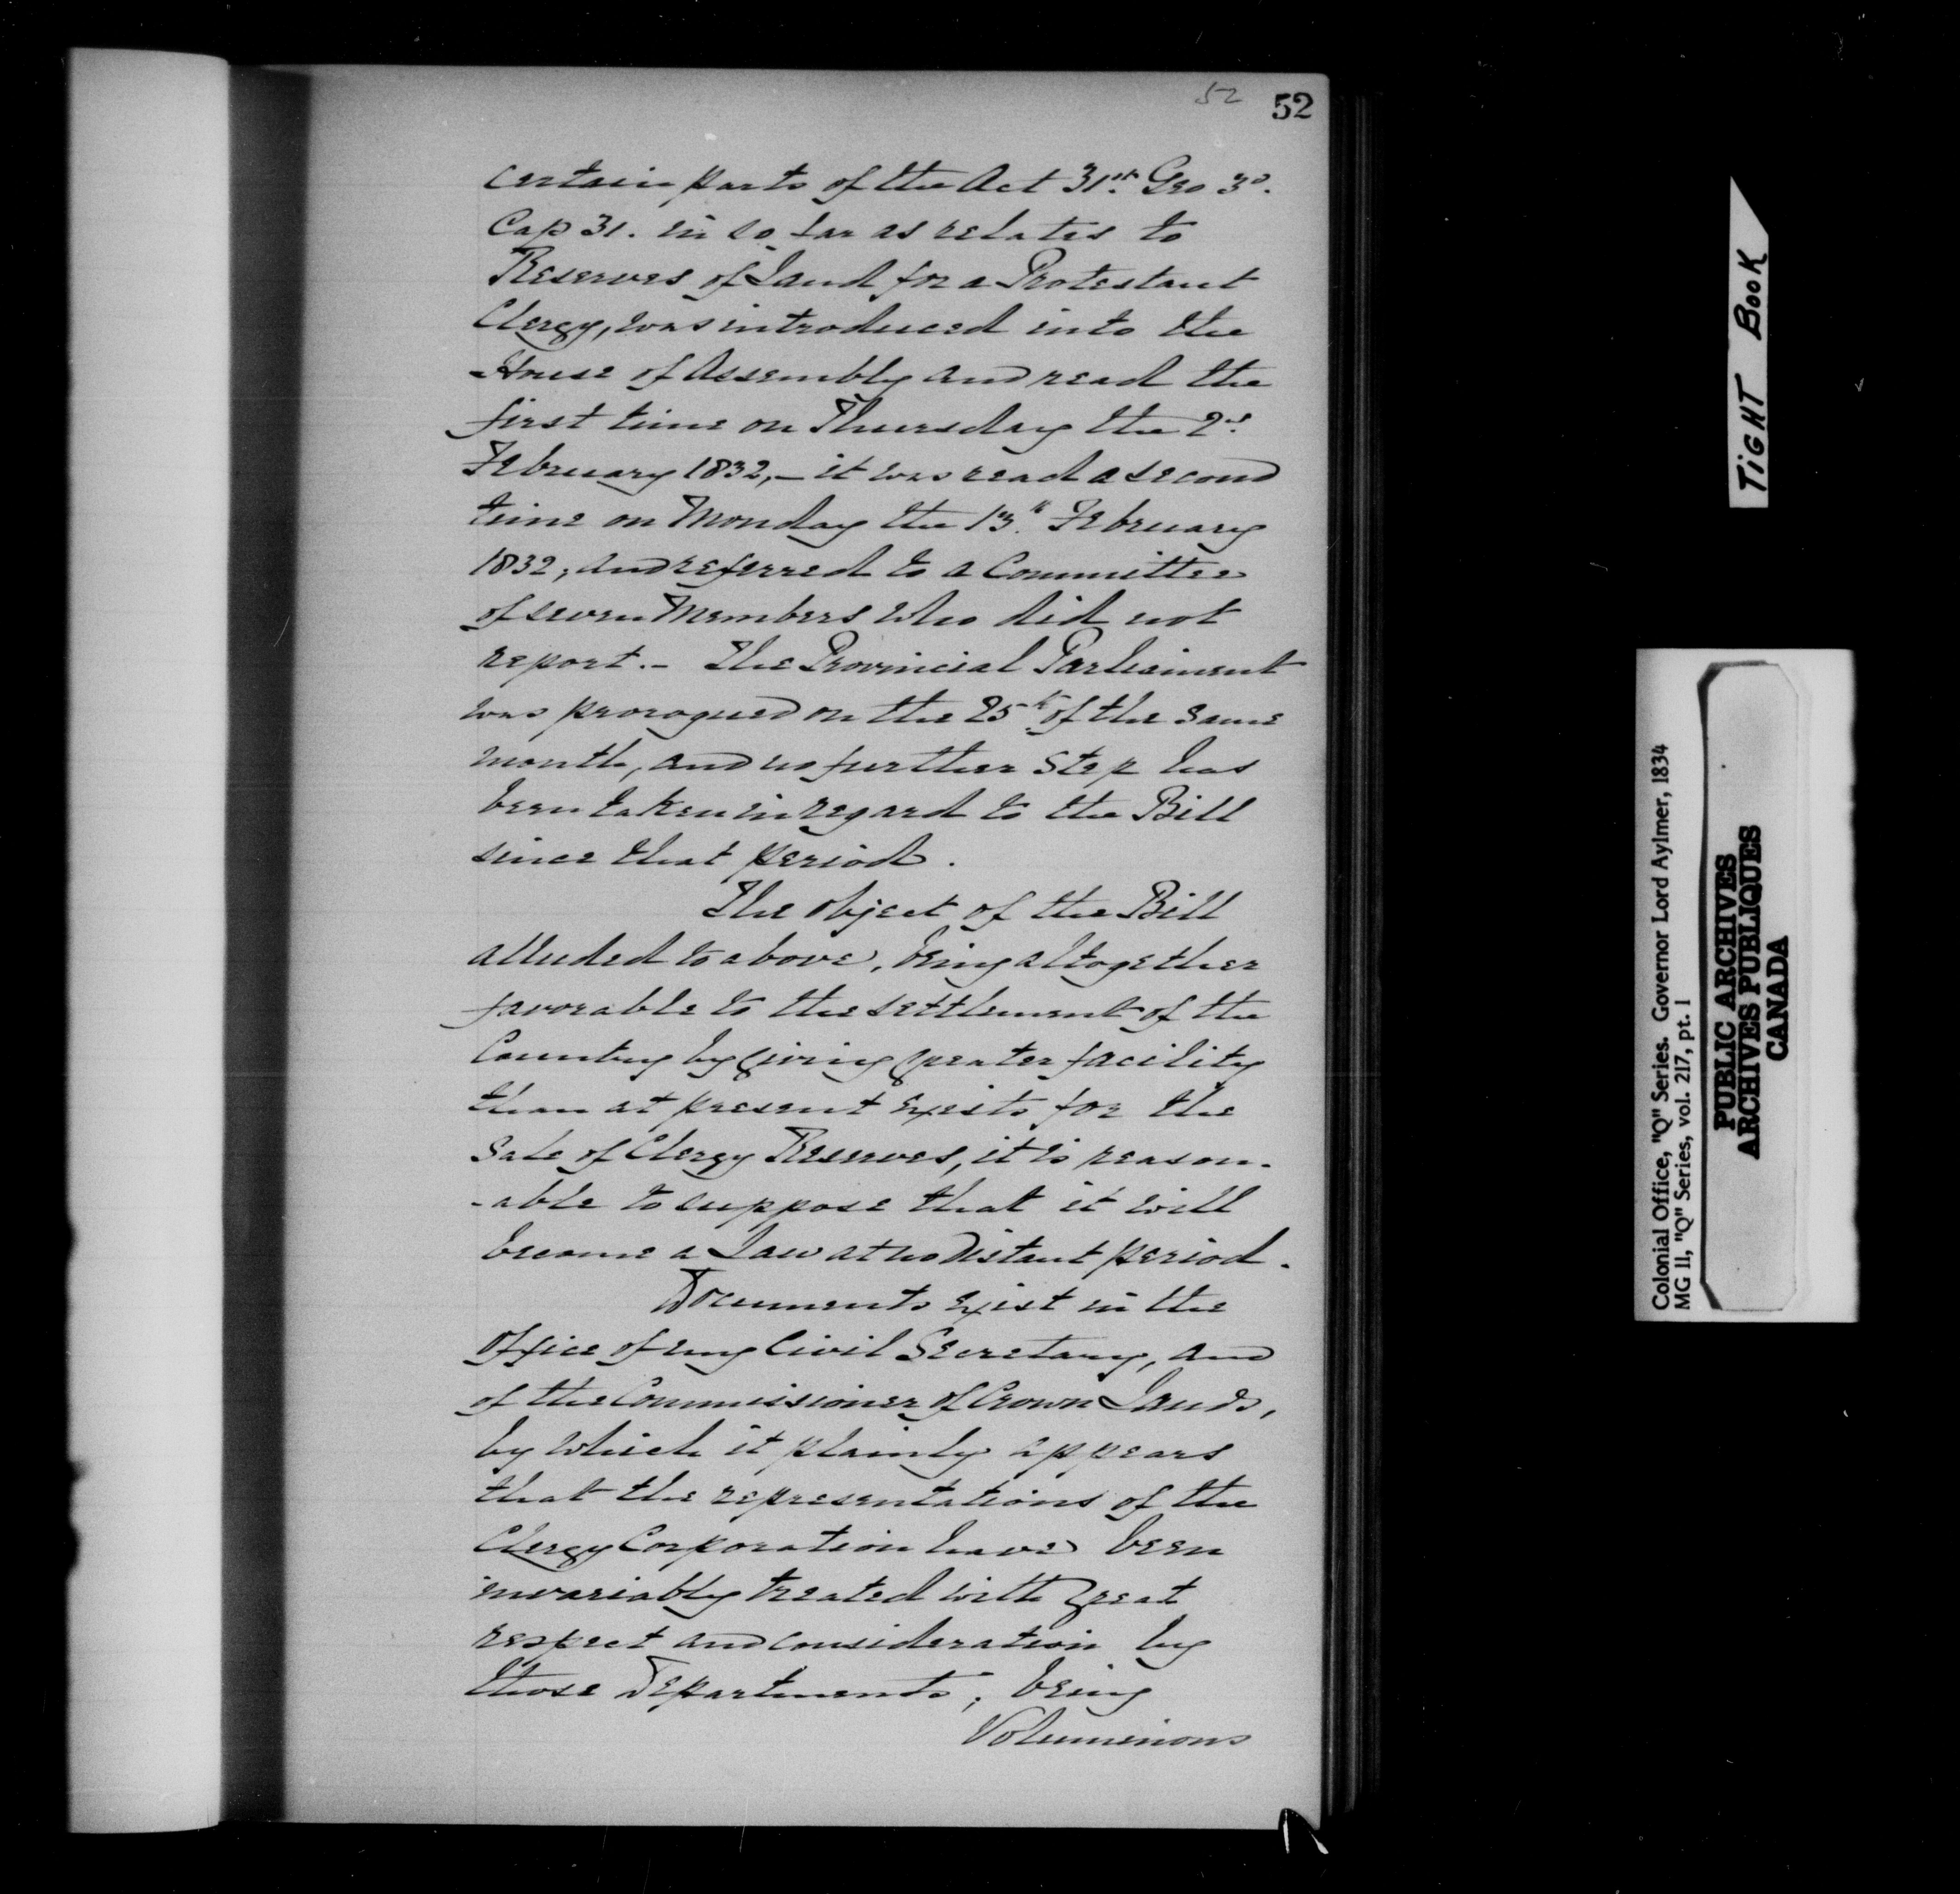 52 52
certain parts of the Act 31st. Geo 3d.
Cap 31. in so far as relates to
Reserves of Land for a Protestant
Clergy, was introduced into the
House of Assembly and read the
first time on Thursday the 2nd.
February 1832,— it was read a second
time on Monday the 13th. February
1832; and referred to a Committee
of seven Members who did not
report.— The Provincial Parliament
was prorogued on the 25th. of the same
month, and no further step has
been taken in regard to the Bill
since that period.
The object of the Bill
alluded to above, being altogether
favorable to the settlement of the
Country by giving greater facility
than at present exists for the
Sale of Clergy Reserves, it is reason-
-able to suppose that it will
become a Law at no distant period.
Documents exist in the
Office of my Civil Secretary, and
of the Commissioner of Crown Lands,
by which it plainly appears
that the representations of the
Clergy Corporation have been
invariably treated with great
respect and consideration by
those Departments; being
Voluminous
TIGHT BOOK
Colonial Office, "Q" Series. Governor Lord Aylmer, 1834
MG 11, "Q" Series, vol. 217, pt. 1
PUBLIC ARCHIVES
ARCHIVES PUBLIQUES
CANADA